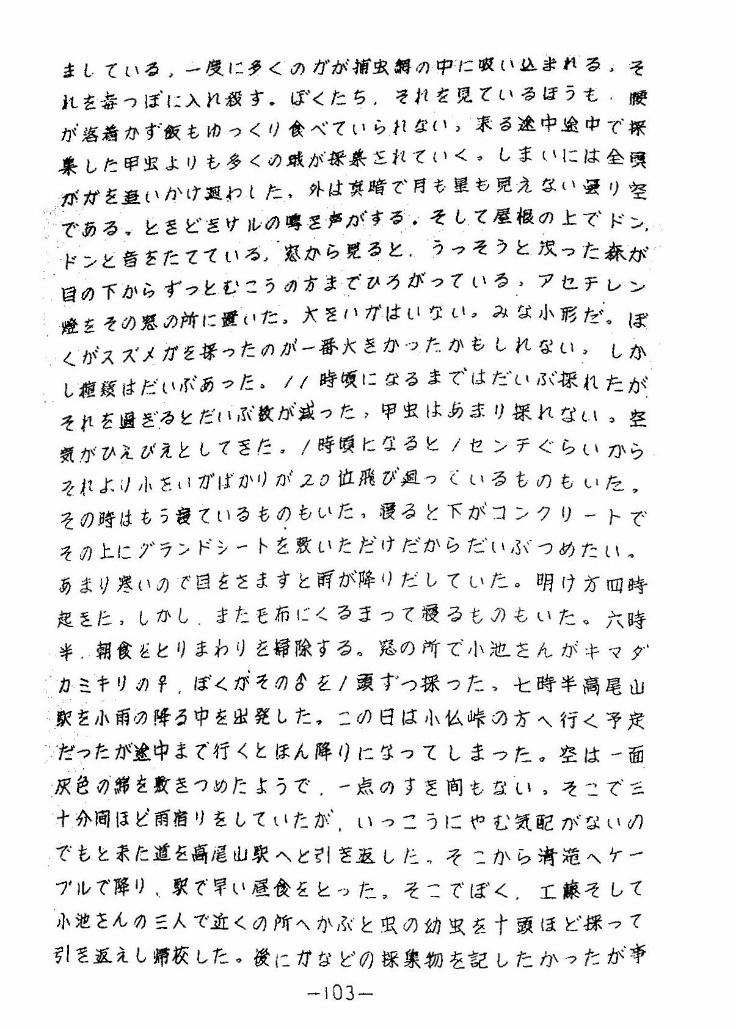 ましている。一度に多くのガが捕虫網の中に吸い込まれる。そ
れを毒つぼに入れ殺す。ぼくたち、それを見ているほうも、腰
が落着かず飯もゆっくり食べていられない。来る途中途中で採
集した甲虫よりも多くの蛾が採集されていく。しまいには全員
がガを追いかけ廻わした。外は真暗で月も星も見えない曇り空
である。ときどきサルの鳴き声がする。そして屋根の上でドン、
ドンと音をたてている。窓から見ると、うっそうと茂った森が
目の下からずっとむこうの方までひろがっている。アセチレン
燈をその窓の所に置いた。大きいガはいない。みな小形だ。ぼ
くがスズメガを採ったのが一番大きかったかもしれない。しか
し種類はだいぶあった。11時頃になるまではだいぶ採れたが
それを過ぎるとだいぶ数が減った。甲虫はあまり採れない。空
気がひえびえとしてきた。1時頃になると1センチぐらいから
それより小さいガばかりが20位飛び廻っているものもいた。
その時はもう寝ているものもいた。寝ると下がコンクリートで
その上にグランドシートを敷いただけだからだいぶつめたい。
あまり寒いので目をさますと雨が降りだしていた。明け方四時
起きた。しかし、また毛布にくるまって寝るものもいた。六時
半、朝食をとりまわりを掃除する。窓の所で小池さんがキマダ
カミキリの♀、ぼくがその♂を1頭ずつ採った。七時半高尾山
駅を小雨の降る中を出発した。この日は小仏峠の方へ行く予定
だったが途中まで行くとほん降りになってしまった。空は一面
灰色の綿を敷きつめたようで、一点のすき間もない。そこで三
十分間ほど雨宿りをしていたが、いっこうにやむ気配がないの
でもと来た道を高尾山駅へと引き返した。そこから清滝へケー
ブルで降り、駅で早い昼食をとった。そこでぼく、工藤そして
小池さんの三人で近くの所へかぶと虫の幼虫を十頭ほど採って
引き返えし帰校した。後にガなどの採集物を記したかったが事
—103—